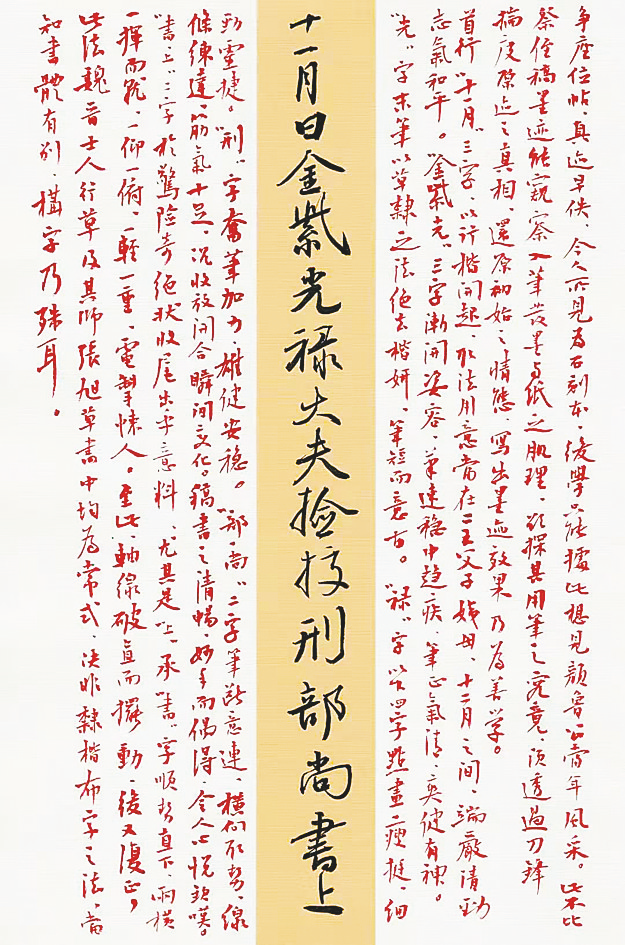 爭座位帖、真迹早佚、今人所見為石刻本、後學只能據此想見顏魯公當年風采。此不比
祭侄稿墨迹能窺察入筆發墨與紙之肌理、欲探其用筆之究竟、須透過刀鋒
揣度原迹之真相、還原初始之情態、寫出墨迹效果乃為善學。
首行"十一月"三字、以行楷開起、取法用意當在二王父子姨母、十二月之間、端嚴清勁
志氣和平。"金紫光"三字漸開姿容、筆速穩中趨疾、筆正氣清、爽健有神。
"光"字末筆以草隸之法絕去楷妍、筆短而意古。"祿"字以下四字點畫瘦挺、細
十一月日金紫光祿大夫撿挍刑部尚書上
勁靈捷。"刑"字奮筆加力、雄健安穩。"部尚"二字筆斷意連、橫向取勢、線
條練達、筋氣十足、況收放開合瞬間變化。稿書之清暢、妙手而偶得、令人心悅欽嘆。
"書上"二字於驚險奇絕狀收尾出乎意料、尤其是"上"承"書"字順勢直下、兩橫
一揮而就、一仰一俯、一輕一重、電掣悚人。至此、軸線破直而擺動、後又復正，
此法魏晉士人行草及其師張旭草書中均為常式、決非隸楷布字之法、當
知書體有別、構字乃殊耳。